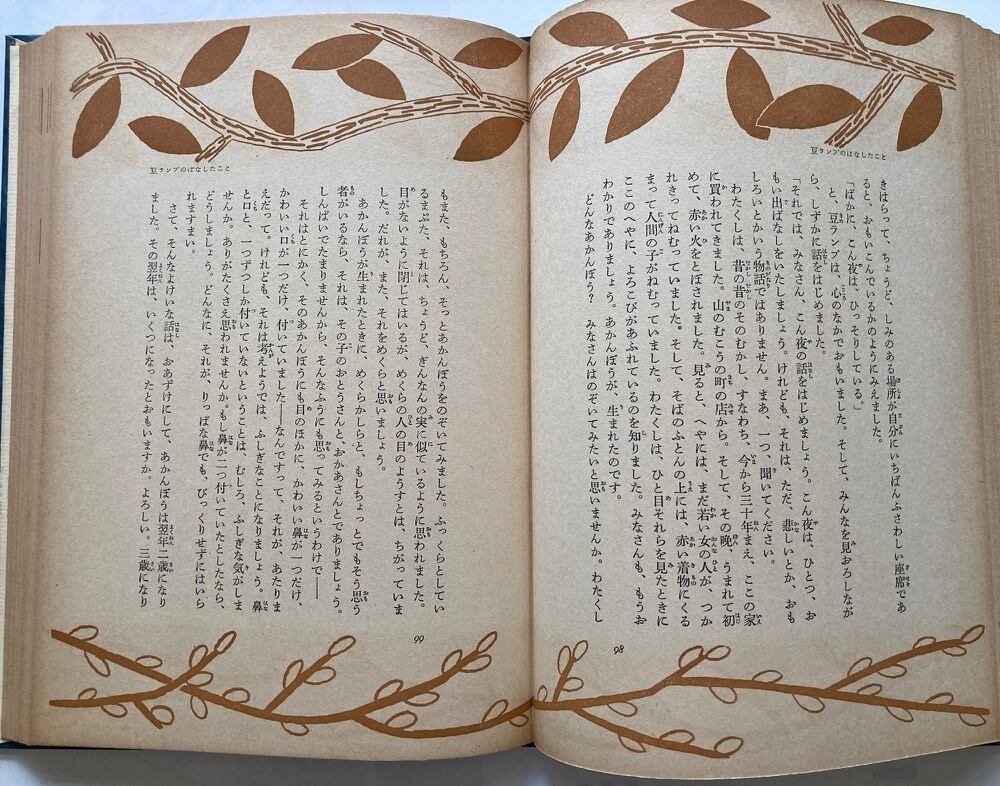 豆ランプのはなしたこと
きはらって、ちょうど、しみのある場所が自分にいちばんふさわしい座席であ
ると、おもいこんでいるかのようにみえました。
「ばかに、こん夜は、ひっそりしている。」
と、豆ランプは、心のなかでおもいました。そして、みんなを見おろしなが
ら、しずかに話をはじめました。
「それでは、みなさん、こん夜の話をはじめましょう。こん夜は、ひとつ、お
もい出ばなしをいたしましょう。けれども、それは、ただ、悲しいとか、おも
しろいとかいう物語ではありません。まあ、一つ、聞いてください。
わたくしは、昔の昔のそのむかし、すなわち、今から三十年まえ、ここの家
に買われてきました。山のむこうの町の店から。そして、その晩、うまれて初
めて、赤い火をとぼされました。見ると、へやには、まだ若い女の人が、つか
れきってねむっていました。そして、そばのふとんの上には、赤い着物にくる
まって人間の子がねむっていました。わたくしは、ひと目それらを見たときに
ここのへやに、よろこびがあふれているのを知りました。みなさんも、もうお
わかりでありましょう。あかんぼうが、生まれたのです。
どんなあかんぼう？　みなさんはのぞいてみたいと思いませんか。わたくし
98
豆ランプのはなしたこと
もまた、もちろん、そっとあかんぼうをのぞいてみました。ふっくらとしてい
るまぶた、それは、ちょうど、ぎんなんの実に似ているように思われました。
目がないように閉じてはいるが、めくらの人の目のようすとは、ちがっていま
した。だれが、また、それをめくらと思いましょう。
あかんぼうが生まれたときに、めくらかしらと、もしちょっとでもそう思う
者がいるなら、それは、その子のおとうさんと、おかあさんとでありましょう。
しんぱいでたまりませんから、そんなふうにも思ってみるというわけで――
それはとにかく、そのあかんぼうにも目のほかに、かわいい鼻が一つだけ、
かわいい口が一つだけ、付いていました――なんですって、それが、あたりま
えだって。けれども、それは考えようでは、ふしぎなことになりましょう。鼻
と口と、一つずつしか付いていないということは、むしろ、ふしぎな気がしま
せんか。ありがたくさえ思われませんか。もし鼻が二つ付いていたとしたなら、
どうしましょう。どんなに、それが、りっぱな鼻でも、びっくりせずにはいら
れますまい。
さて、そんなよけいな話は、おあずけにして、あかんぼうは翌年二歳になり
ました。その翌年は、いくつになったとおもいますか。よろしい。三歳になり
99